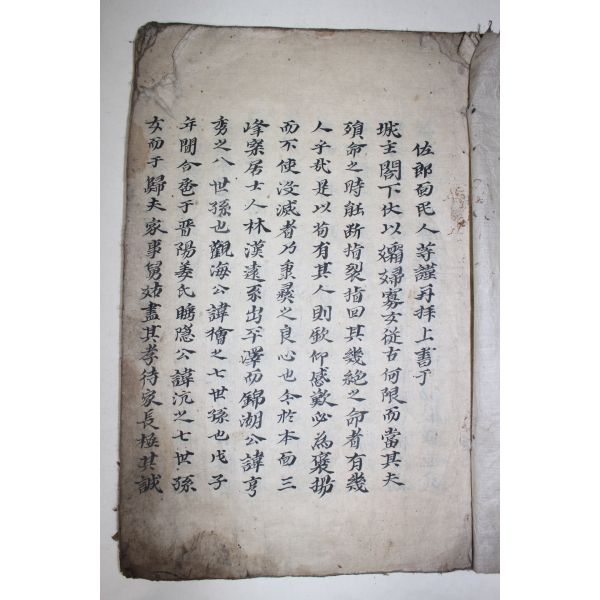 佐郎面民人等謹再拜上書于
城主閤下伏以孀婦寡女從古何限而當其夫
殞命之時能斷指裂指回其幾絶之命者有幾
人乎哉是以苟有其人則欽仰感歎必為褒揚
而不使沒滅者乃秉彛之良心也今於本面三
峰寀居士人林漢遠系出平澤而錦湖公諱亨
秀之八世孫也觀海公諱檜之七世孫也戊子
年間合巹于晋陽姜氏睡隱公諱沆之七世孫
女而于歸夫家事舅姑盡其孝待家長極其誠